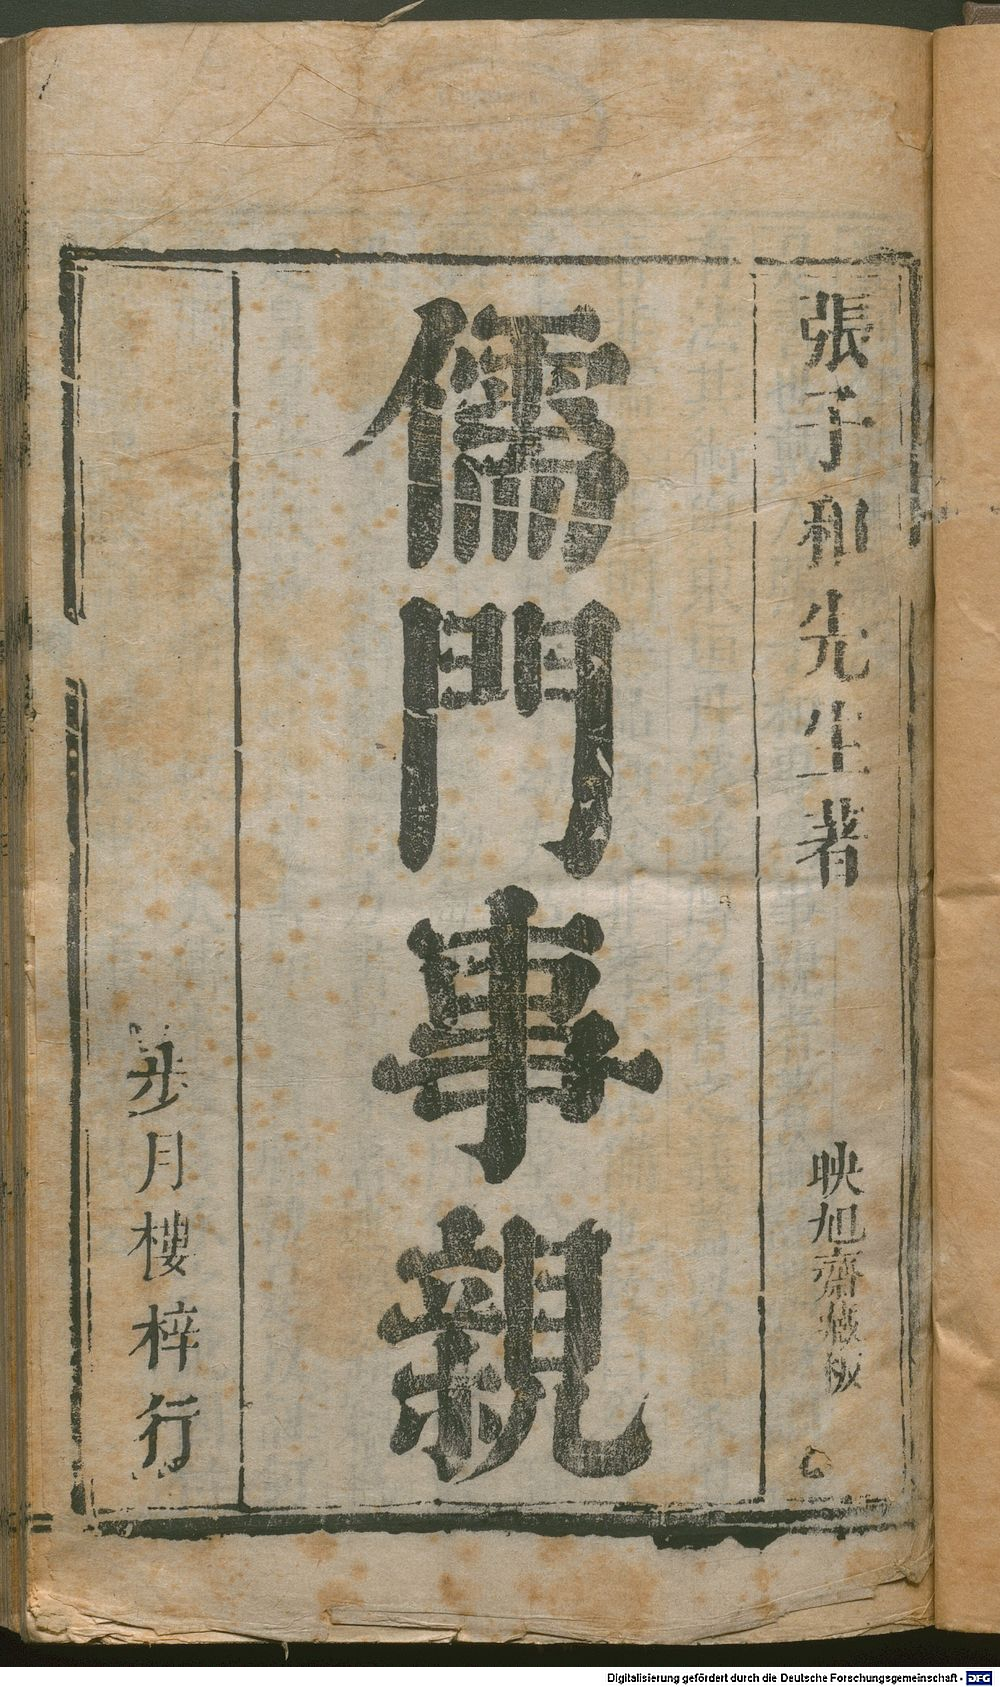 張子和先生著
映旭齋藏板
儒門事親
步月樓梓行
Digitalisierung gefördert durch die Deutsche Forschungsgemeinschaft - DFG